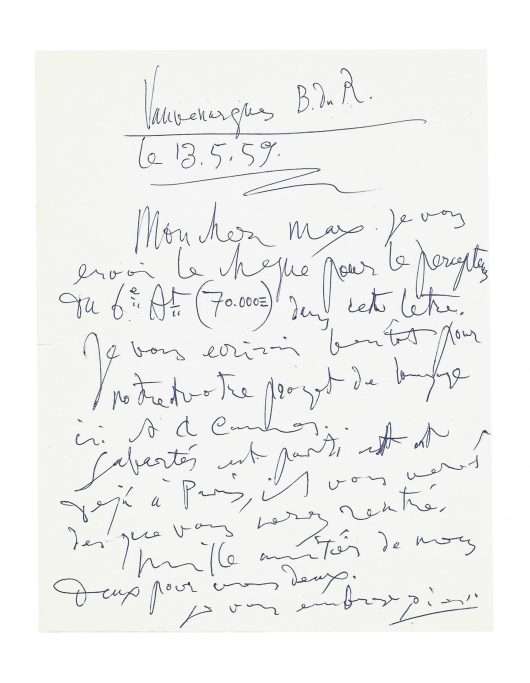 Vauvenargues B. du R.
le 13.5.59.
Mon cher Max. je vous
envoi le cheque pour le percepteur
du 6e At (70.000=) dans cette lettre.
Je vous ecrirai bientôt pour
notre votre projet de
ici. et à Cannes..
Sabartés est parti et est
dejà à Paris, il vous verra
des que vous serez rentré.
mille amitiés de nous
deux pour vous deux.
je vous embrasse